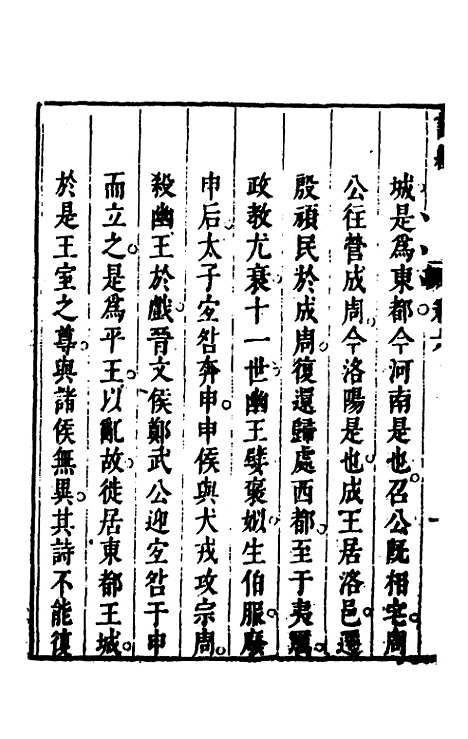 城是爲東都今河南是也召公旣相宅周
公往營成周今洛陽是也成王居洛邑遷
殷頑民於成周復還歸處西都至于夷厲
政敎尤衰十一世幽王嬖褒姒生伯服廢
申后太子宜咎奔申申侯與犬戎攻宗周
殺幽王於戲晉文侯鄭武公迎宜咎于申
而立之是爲平王以亂故徙居東都王城
於是王室之尊與諸侯無異其詩不能復